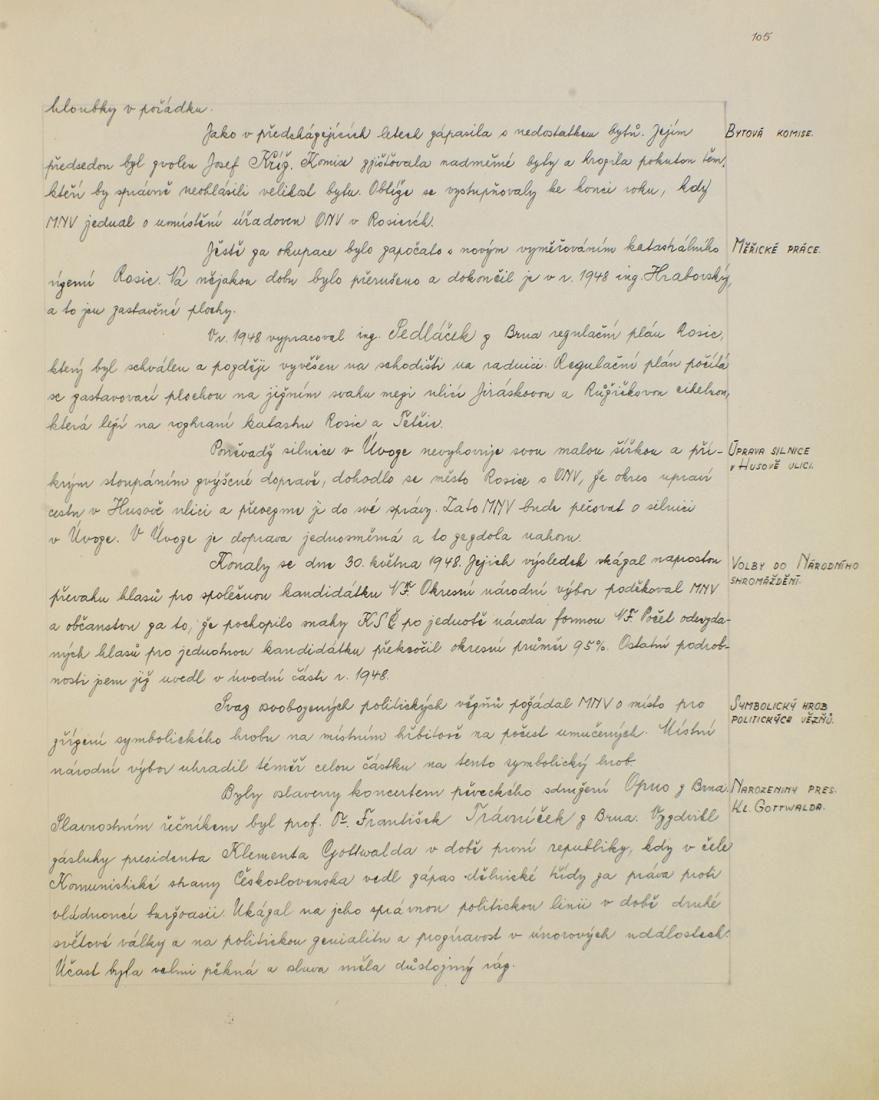 105
hloubky v pořádku.
Jako v předcházejících letech zápasila s nedostatkem bytů. Jejím
BYTOVÁ KOMISE.
předsedou byl zvolen Josef Kříž. Komise zjišťovala nadměrné byty a hrozila pokutou těm,
kteří by správně neohlásili velikost bytu. Obtíže se vystupňovaly ke konci roku, kdy
MNV jednal o umístění úřadoven ONV v Rosicích.
Ještě za okupace bylo započato s novým vyměřováním katastrálního
MĚŘICKÉ PRÁCE.
území Rosic. Na nějakou dobu bylo přerušeno a dokončil je v r. 1948 ing. Hraborský,
a to jen zastavěné plochy.
V r. 1948 vypracoval ing. Sedláček z Brna regulační plán Rosic,
který byl schválen a později vyvěšen na schodišti na radnici. Regulační plán počítá
se zastavovací plochou na jižním svahu mezi ulicí Jiráskovou a Růžičkovou cihelnou,
která leží na rozhraní katastru Rosic a Tetčic.
Poněvadž silnice v Úvoze nevyhovuje svou malou šířkou a pří-
ÚPRAVA SILNICE
V HUSOVĚ ULICI.
krým stoupáním zvýšené dopravě, dohodlo se město Rosice s ONV, že okres upraví
cestu v Husově ulici a převezme ji do své správy. Zato MNV bude pečovat o silnici
v Úvoze. V Úvoze je doprava jednosměrná a to zezdola nahoru.
Konaly se dne 30. května 1948. Jejich výsledek ukázal naprostou
VOLBY DO NÁRODNÍHO
SHROMÁŽDĚNÍ.
převahu hlasů pro společnou kandidátku NF. Okresní národní výbor poděkoval MNV
a občanstvu za to, že pochopilo snahy KSČ po jednotě národa formou NF. Počet odevzda-
ných hlasů pro jednotnou kandidátku překročil okresní průměr 95%. Ostatní podrob-
nosti jsem již uvedl v úvodní části r. 1948.
Svaz osvobozených politických vězňů požádal MNV o místo pro
SYMBOLICKÝ HROB
POLITICKÝCH VĚZŇŮ.
zřízení symbolického hrobu na místním hřbitově na počest umučených. Místní
národní výbor uhradil téměř celou částku na tento symbolický hrob.
Byly oslaveny koncertem pěveckého sdružení Opus z Brna.
NAROZENINY PRES.
KL. GOTTWALDA.
Slavnostním řečníkem byl prof. Dr. František Trávníček z Brna. Vyzdvihl
zásluhy presidenta Klementa Gottwalda v době první republiky, kdy v čele
Komunistické strany Československa vedl zápas dělnické třídy za práva proti
vládnoucí buržoasii. Ukázal na jeho správnou politickou linii v době druhé
světové války a na politickou genialitu a prozíravost v únorových událostech.
Účast byla velmi pěkná a oslava měla důstojný ráz.